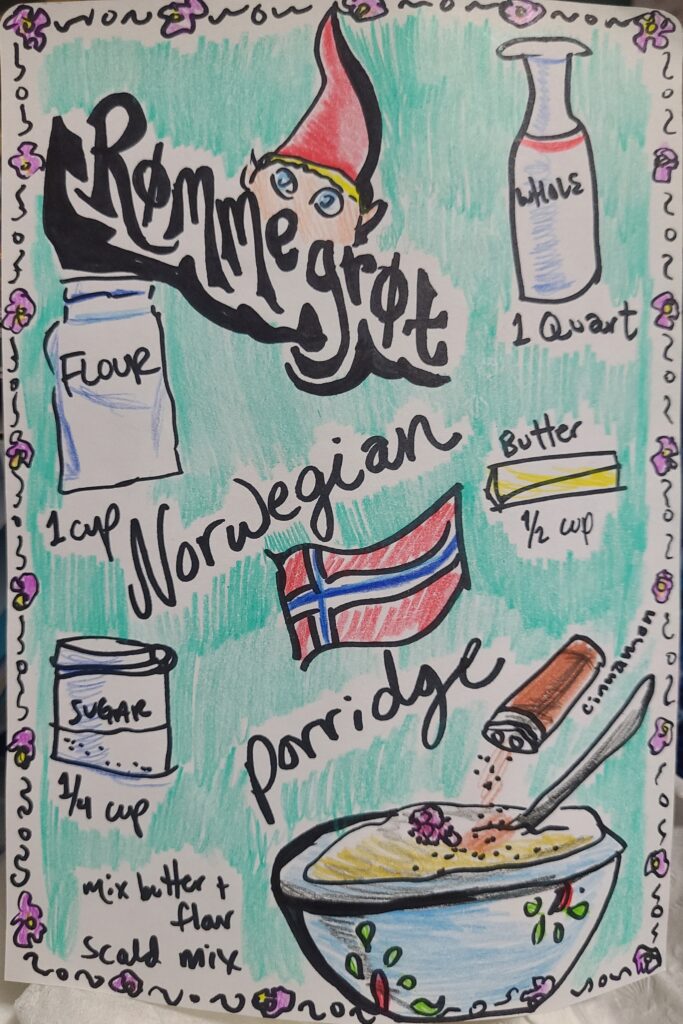 Rømmegrøt
WHOLE
1 Quart
FLOUR
1 cup
Butter
1/2 cup
Norwegian
porridge
cinnamon
SUGAR
1/4 cup
mix butter +
flour
scald mix